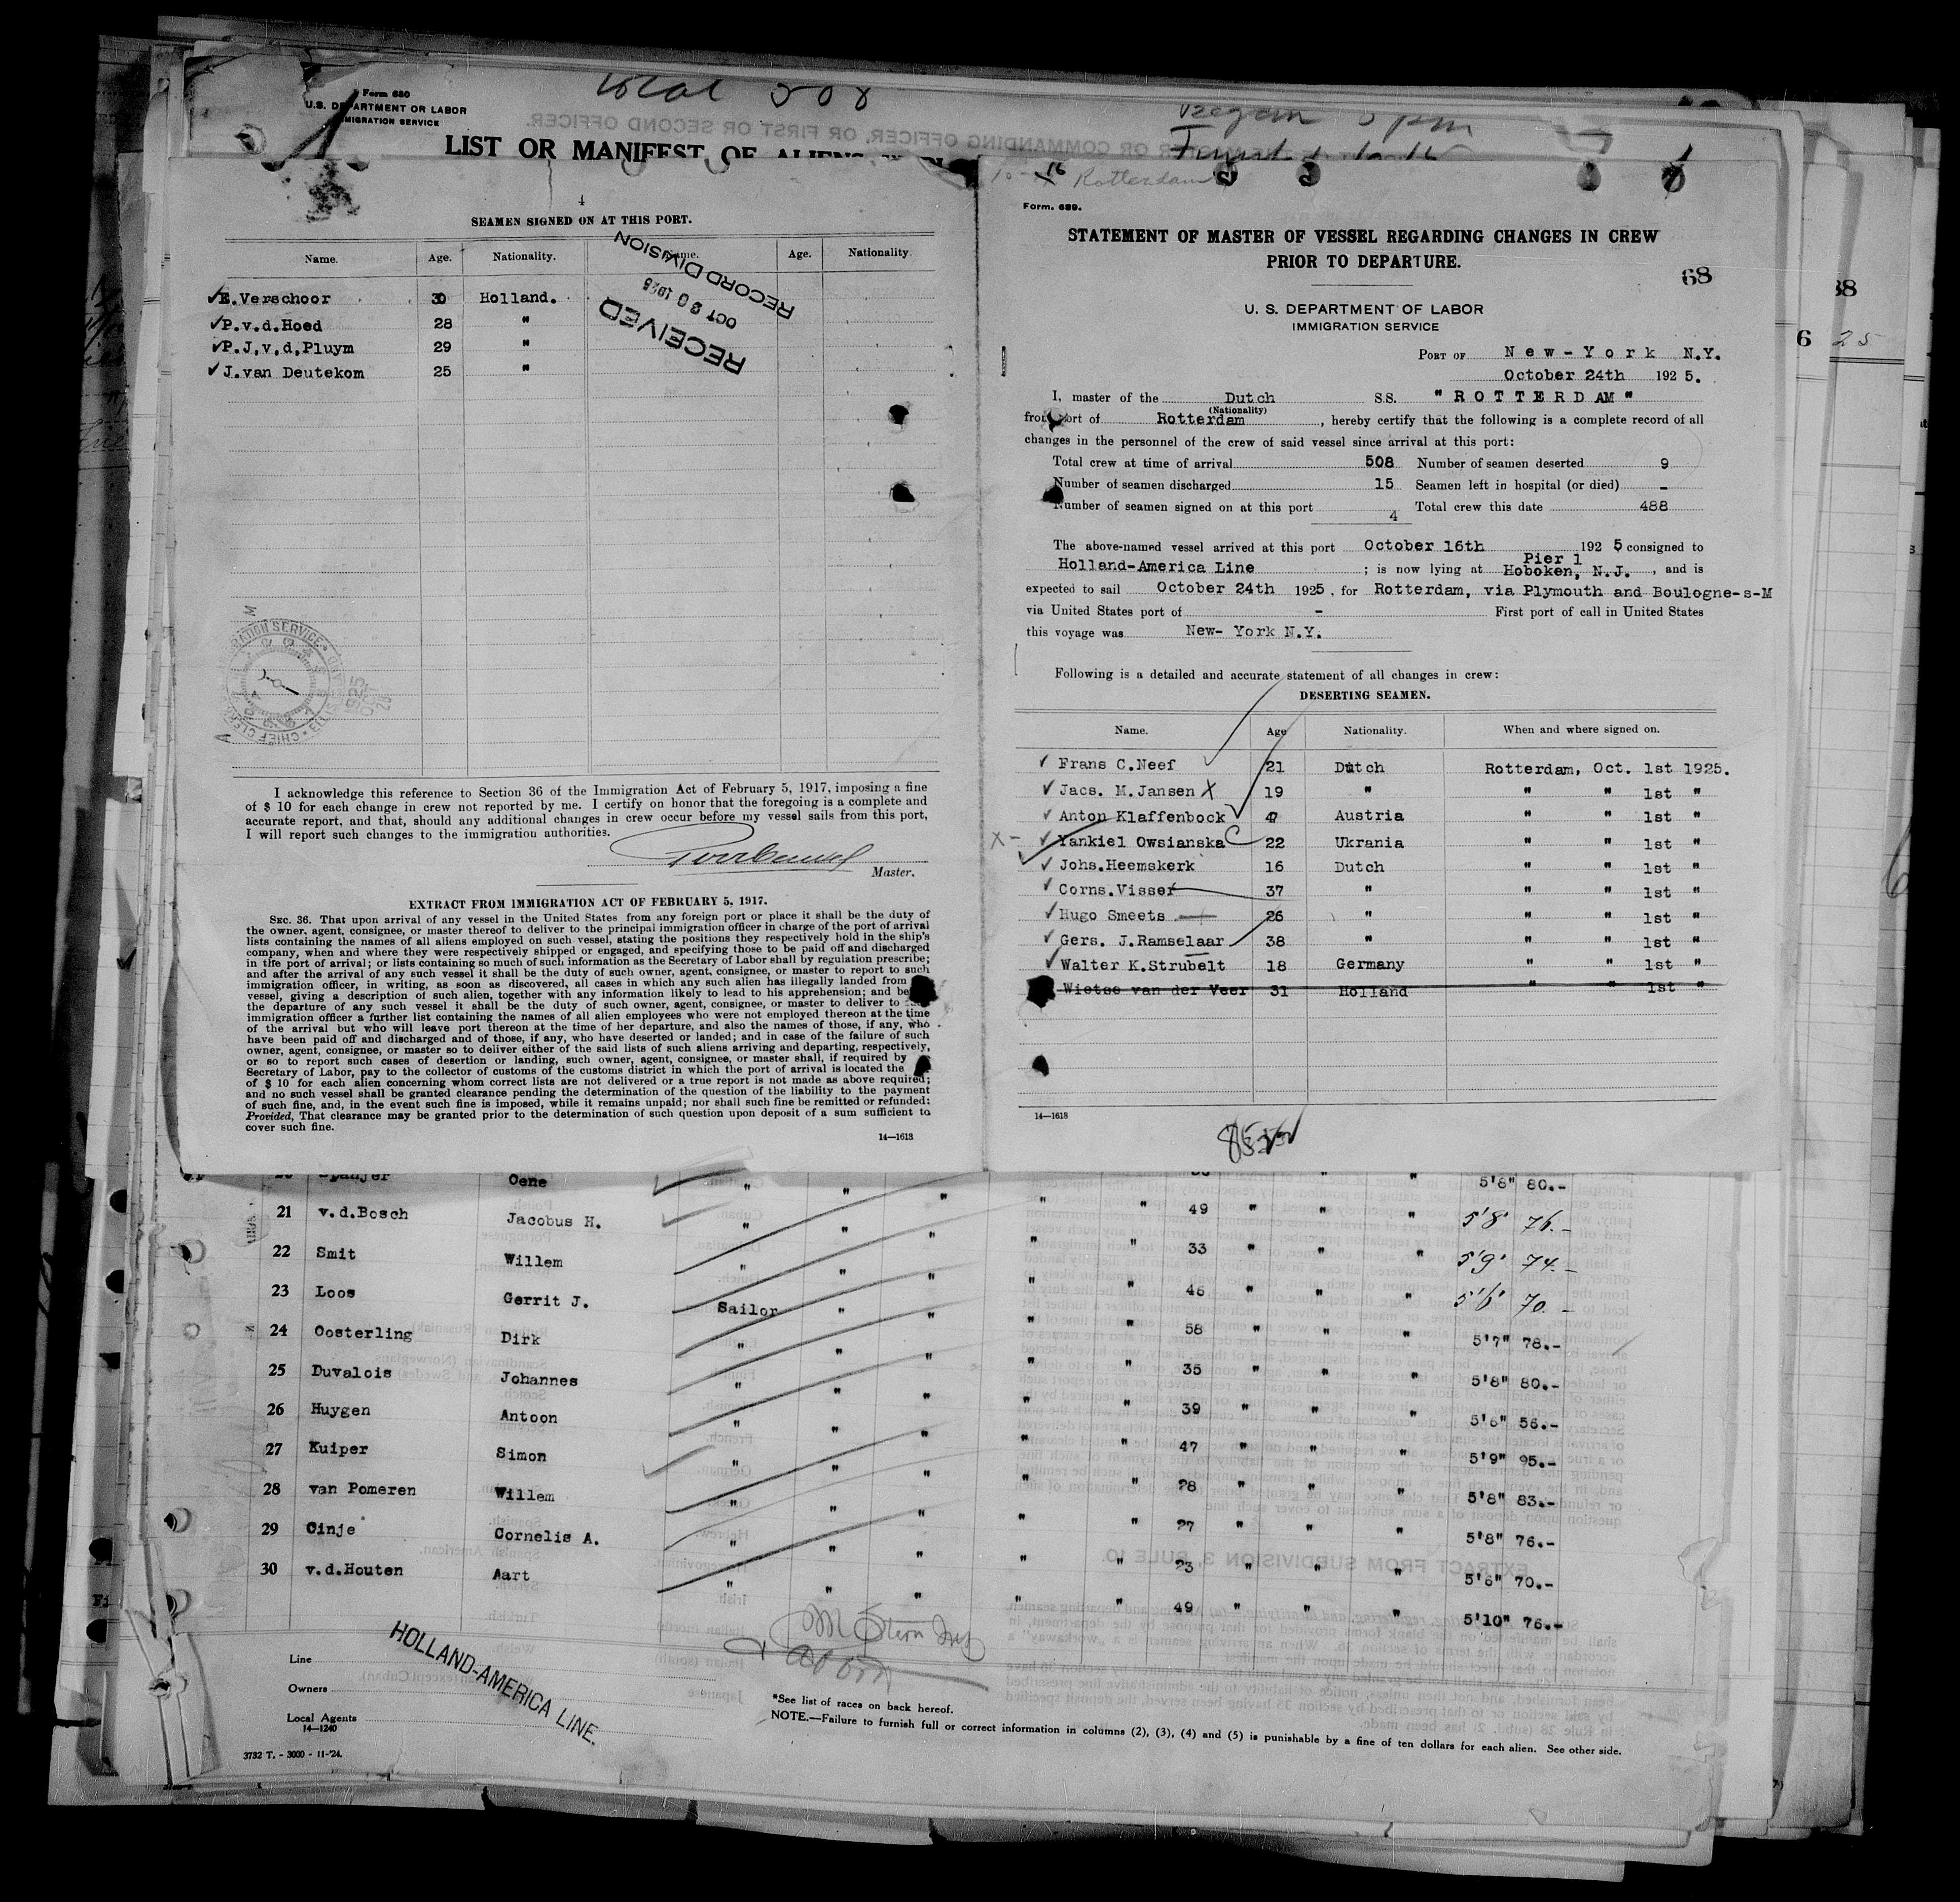 Total 508
Began 5 pm
Form 680
U.S. DEPARTMENT OR LABOR
IMMIGRATION SERVICE
LIST OR MANIFEST OF ALIENS
4
SEAMEN SIGNED ON AT THIS PORT.
Name. Age. Nationality. Name. Age. Nationality.
E.Verschoor 30 Holland.
P.v.d.Hoed 28 "
P.J,v,d,Pluym 29 "
J.van Deutekom 25 "
RECEIVED
OCT 1925
RECORD DIVISION
I acknowledge this reference to Section 36 of the Immigration Act of February 5, 1917, imposing a fine
of $ 10 for each change in crew not reported by me. I certify on honor that the foregoing is a complete and
accurate report, and that, should any additional changes in crew occur before my vessel sails from this port,
I will report such changes to the immigration authorities.
Master.
EXTRACT FROM IMMIGRATION ACT OF FEBRUARY 5, 1917.
SEC. 36. That upon arrival of any vessel in the United States from any foreign port or place it shall be the duty of
the owner, agent, consignee, or master thereof to deliver to the principal immigration officer in charge of the port of arrival
lists containing the names of all aliens employed on such vessel, stating the positions they respectively hold in the ship's
company, when and where they were respectively shipped or engaged, and specifying those to be paid off and discharged
in the port of arrival; or lists containing so much of such information as the Secretary of Labor shall by regulation prescribe;
and after the arrival of any such vessel it shall be the duty of such owner, agent, consignee, or master to report to such
immigration officer, in writing, as soon as discovered, all cases in which any such alien has illegally landed from
vessel, giving a description of such alien, together with any information likely to lead to his apprehension; and be
the departure of any such vessel it shall be the duty of such owner, agent, consignee, or master to deliver to
immigration officer a further list containing the names of all alien employees who were not employed thereon at the time
of the arrival but who will leave port thereon at the time of her departure, and also the names of those, if any, who
have been paid off and discharged and of those, if any, who have deserted or landed; and in case of the failure of such
owner, agent, consignee, or master so to deliver either of the said lists of such aliens arriving and departing, respectively,
or so to report such cases of desertion or landing, such owner, agent, consignee, or master shall, if required by
Secretary of Labor, pay to the collector of customs of the customs district in which the port of arrival is located the
of $ 10 for each alien concerning whom correct lists are not delivered or a true report is not made as above required;
and no such vessel shall be granted clearance pending the determination of the question of the liability to the payment
of such fine, and, in the event such fine is imposed, while it remains unpaid; nor shall such fine be remitted or refunded:
Provided, That clearance may be granted prior to the determination of such question upon deposit of a sum sufficient to
cover such fine.
14—1613
16 Rotterdam
Form. 689.
STATEMENT OF MASTER OF VESSEL REGARDING CHANGES IN CREW
PRIOR TO DEPARTURE.
68
U. S. DEPARTMENT OF LABOR
IMMIGRATION SERVICE
PORT OF New-York N.Y.
October 24th 1925.
I, master of the Dutch SS. "ROTTERDAM"
(Nationality)
from port of Rotterdam, hereby certify that the following is a complete record of all
changes in the personnel of the crew of said vessel since arrival at this port:
Total crew at time of arrival 508 Number of seamen deserted 9
Number of seamen discharged 15 Seamen left in hospital (or died) -
Number of seamen signed on at this port 4 Total crew this date 488
The above-named vessel arrived at this port October 16th 1925 consigned to
Holland-America Line ; is now lying at Pier 1 Hoboken, N.J. , and is
expected to sail October 24th 1925, for Rotterdam, via Plymouth and Boulogne-s-M
via United States port of - First port of call in United States
this voyage was New- York N.Y.
Following is a detailed and accurate statement of all changes in crew:
DESERTING SEAMEN.
Name. Age Nationality. When and where signed on.
Frans C.Neef 21 Dutch Rotterdam, Oct. 1st 1925.
Jacs. M.Jansen X 19 " " " 1st "
Anton Klaffenbock Austria " " 1st "
Yankiel Owsianska 22 Ukrania " " 1st "
Johs.Heemskerk 16 Dutch " " 1st "
Corns.Visser 37 " " " 1st "
Hugo Smeets 26 " " " 1st "
Gers. J.Ramselaar 38 " " " 1st "
Walter K.Strubelt 18 Germany " " 1st "
Wietse van der Veer 31 Holland " " 1st "
14—1618
Spanjer Oene " " " " " 5'8" 80.-
21 v.d.Bosch Jacobus H. " " " " " 49 " " " 5'8" 76.-
22 Smit Willem " " " " " 33 " " " 5'9" 74.-
23 Loos Gerrit J. Sailor " " " " 46 " " " 5'6" 70.-
24 Oosterling Dirk " " " " " 58 " " " 5'7" 78.-
25 Duvalois Johannes " " " " " 35 " " " 5'8" 80.-
26 Huygen Antoon " " " " " 39 " " " 5'6" 56.-
27 Kuiper Simon " " " " " 47 " " " 5'9" 95.-
28 van Pomeren Willem " " " " " 28 " " " 5'8" 83.-
29 Cinje Cornelis A. " " " " " 27 " " " 5'8" 76.-
30 v.d.Houten Aart " " " " " 23 " " " 5'6" 70.-
49 " " " 5'10" 76.-
Line
Owners
Local Agents
14—1240
HOLLAND-AMERICA LINE.
3732 T. - 3000 - 11-'24.
*See list of races on back hereof.
NOTE.—Failure to furnish full or correct information in columns (2), (3), (4) and (5) is punishable by a fine of ten dollars for each alien. See other side.